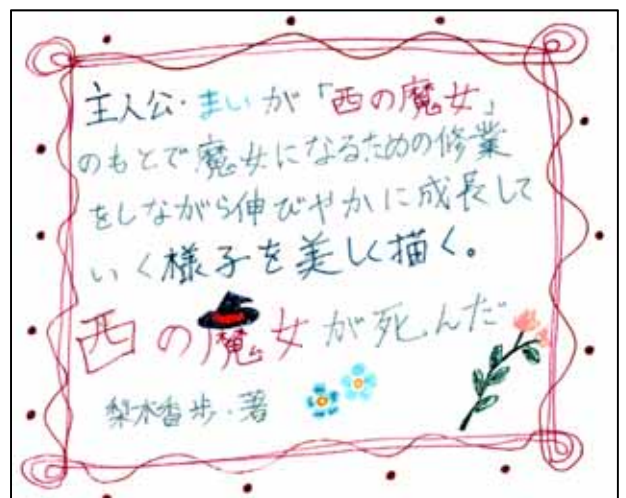 主人公・まいが「西の魔女」
のもとで魔女になるための修業
をしながら伸びやかに成長して
いく様子を美しく描く。
西の魔女が死んだ
梨木香歩・著